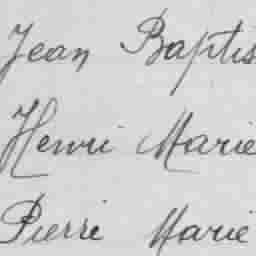 Jean Baptis
Henri Marie
Pierre Marie